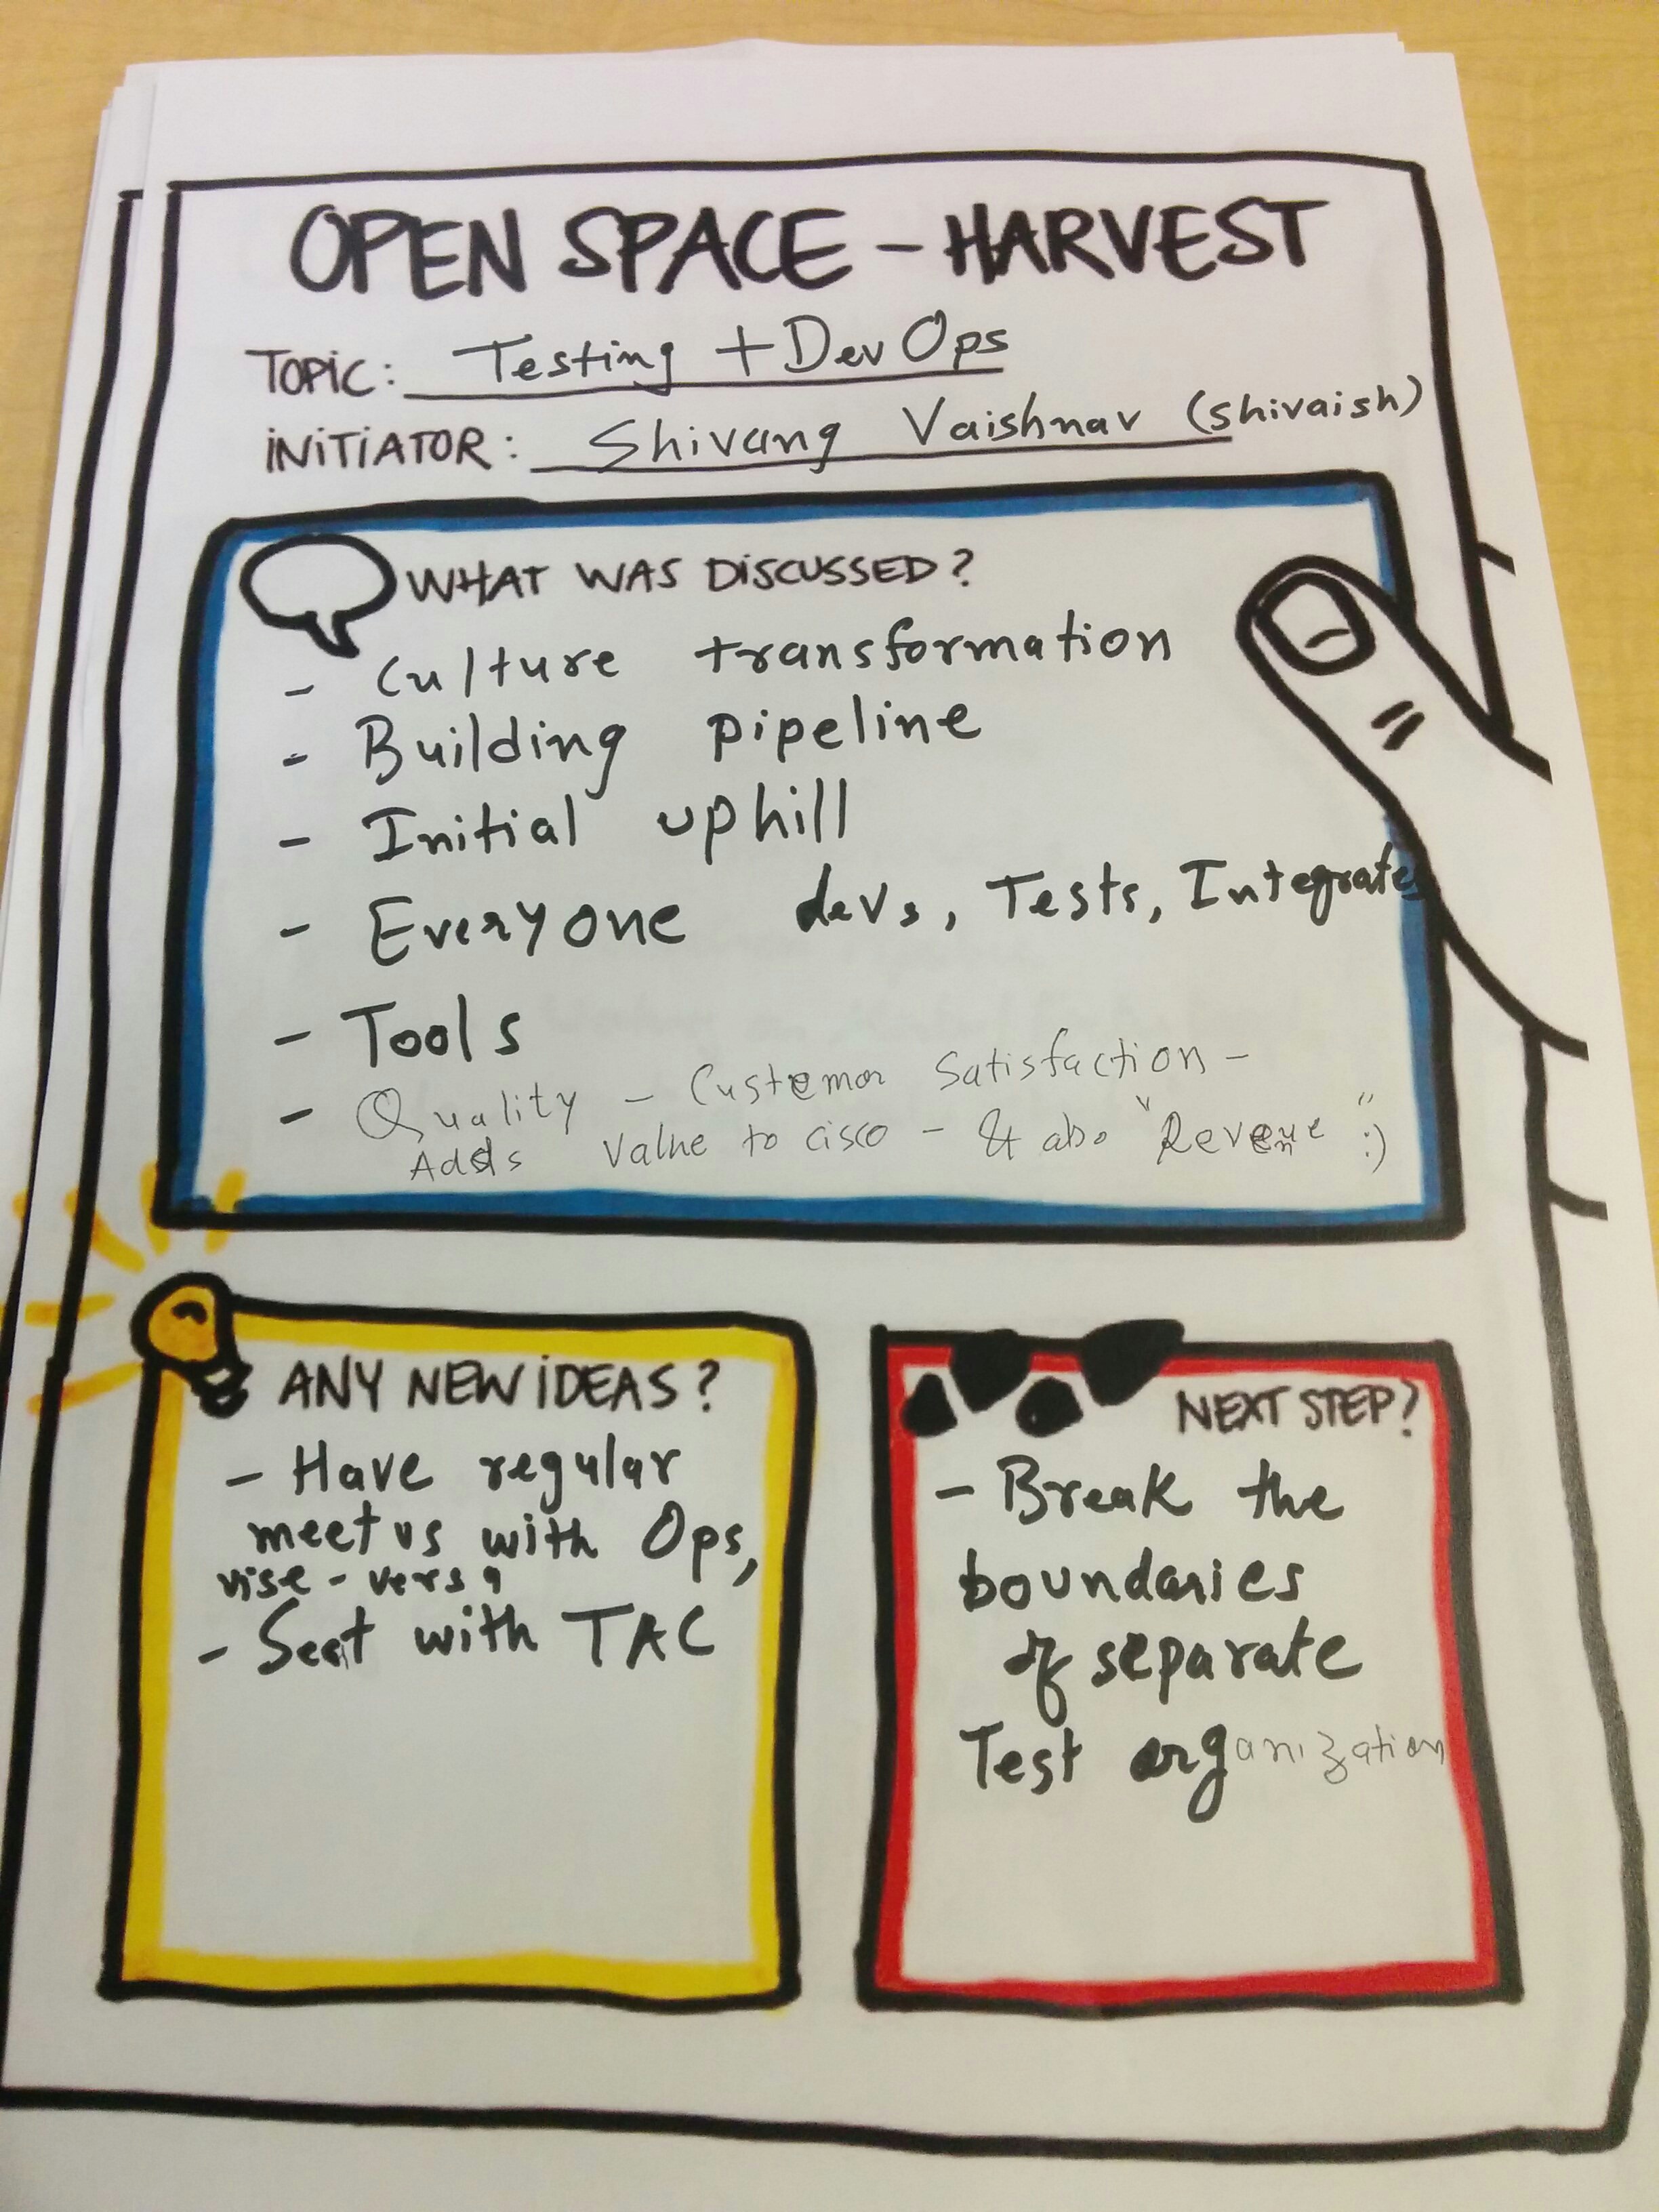 OPEN SPACE - HARVEST
TOPIC: Testing + DevOps
INITIATOR: Shivang Vaishnav (shivaish)
WHAT WAS DISCUSSED?
- Culture transformation
- Building pipeline
- Initial uphill
- Everyone devs, Tests, Integrates
- Tools
- Quality - Customer Satisfaction -
Adds Value to cisco - & also "Revenue" :)
ANY NEW IDEAS?
- Have regular
meet us with Ops,
vise-versa
- Seat with TAC
NEXT STEP?
- Break the
boundaries
of separate
Test organization